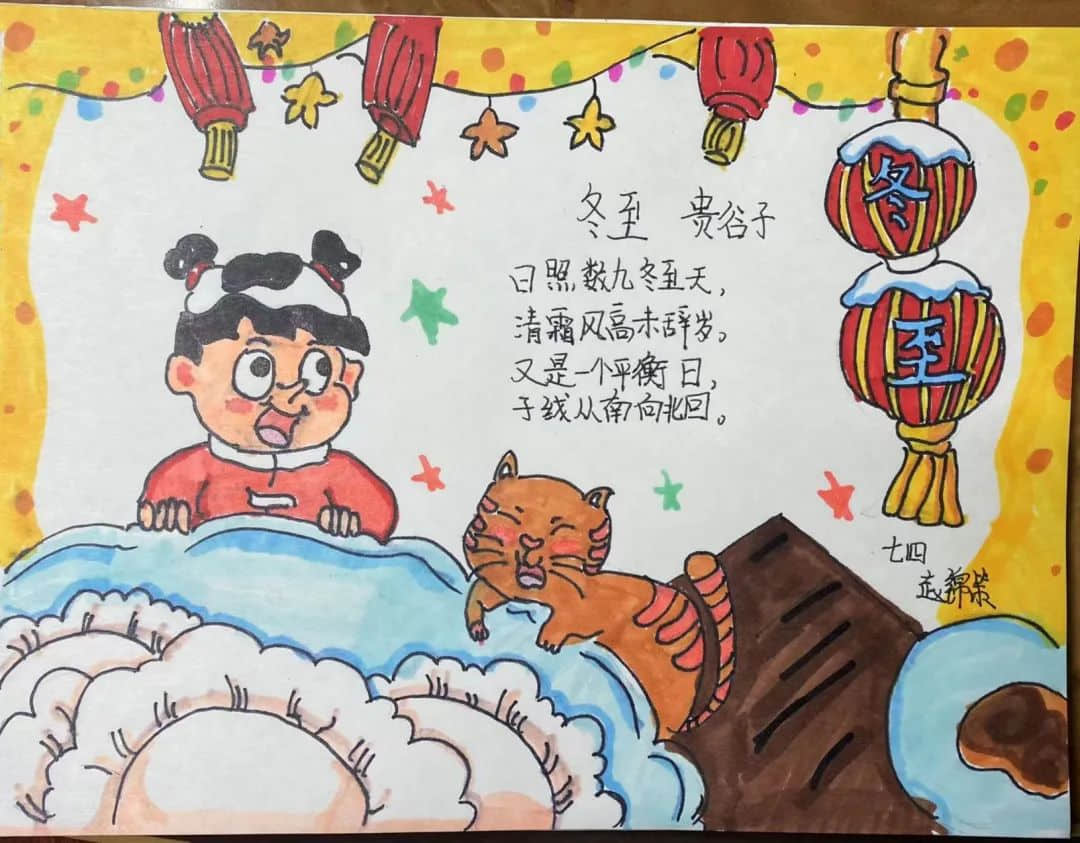 冬至 贵谷子
日照数九冬至天，
清霜风高未辞岁。
又是一个平衡日，
子线从南向北回。
冬
至
七四
赵锦荣